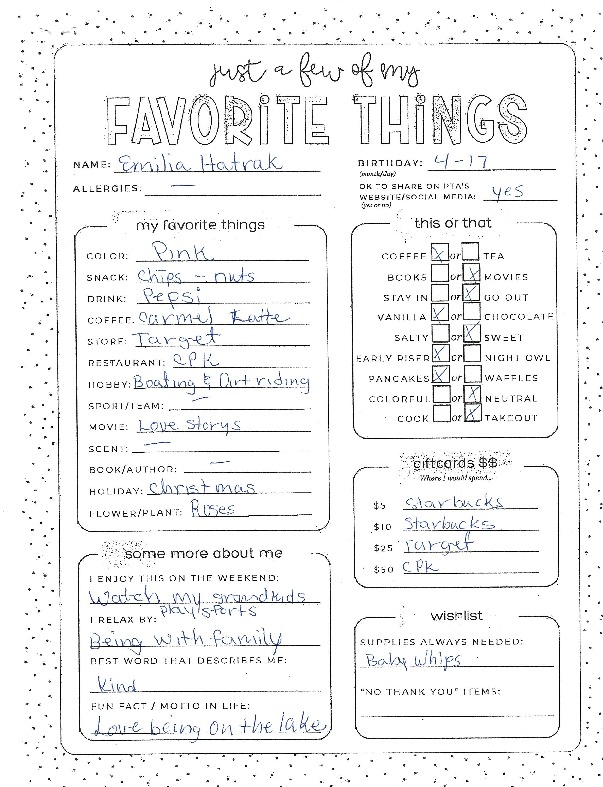 just a few of my
FAVORITE THINGS
NAME: Emilia Hatrak
BIRTHDAY: 4-17
(month/day)
ALLERGIES: —
OK TO SHARE ON PTA'S
WEBSITE/SOCIAL MEDIA: yes
(yes or no)
my favorite things
COLOR: Pink
SNACK: Chips - nuts
DRINK: Pepsi
COFFEE: Carmel Latte
STORE: Target
RESTAURANT: CPK
HOBBY: Boating & Art riding
SPORT/TEAM: —
MOVIE: Love Storys
SCENT: —
BOOK/AUTHOR: —
HOLIDAY: Christmas
FLOWER/PLANT: Roses
this or that
COFFEE X or TEA
BOOKS or X MOVIES
STAY IN or X GO OUT
VANILLA X or CHOCOLATE
SALTY or X SWEET
EARLY RISER X or NIGHT OWL
PANCAKES X or WAFFLES
COLORFUL or X NEUTRAL
COOK or X TAKEOUT
giftcards $$
Where I would spend...
$5 Starbucks
$10 Starbucks
$25 Target
$50 CPK
some more about me
I ENJOY THIS ON THE WEEKEND:
Watch my grandkids
play sports
I RELAX BY:
Being with family
BEST WORD THAT DESCRIBES ME:
Kind
FUN FACT / MOTTO IN LIFE:
Love being on the lake
wishlist
SUPPLIES ALWAYS NEEDED:
Baby Whips
"NO THANK YOU" ITEMS: